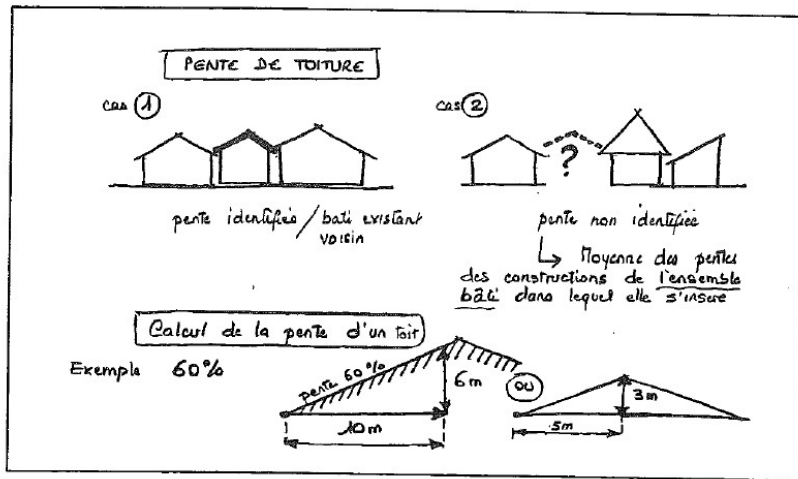 PENTE DE TOITURE
cas 1
cas 2
?
pente identifiée / bati existant
voisin
pente non identifiée
Moyenne des pentes
des constructions de l'ensemble
bâti dans lequel elle s'insere
Calcul de la pente d'un toit
Exemple 60%
pente 60%
6m
ou
3m
10m
5m